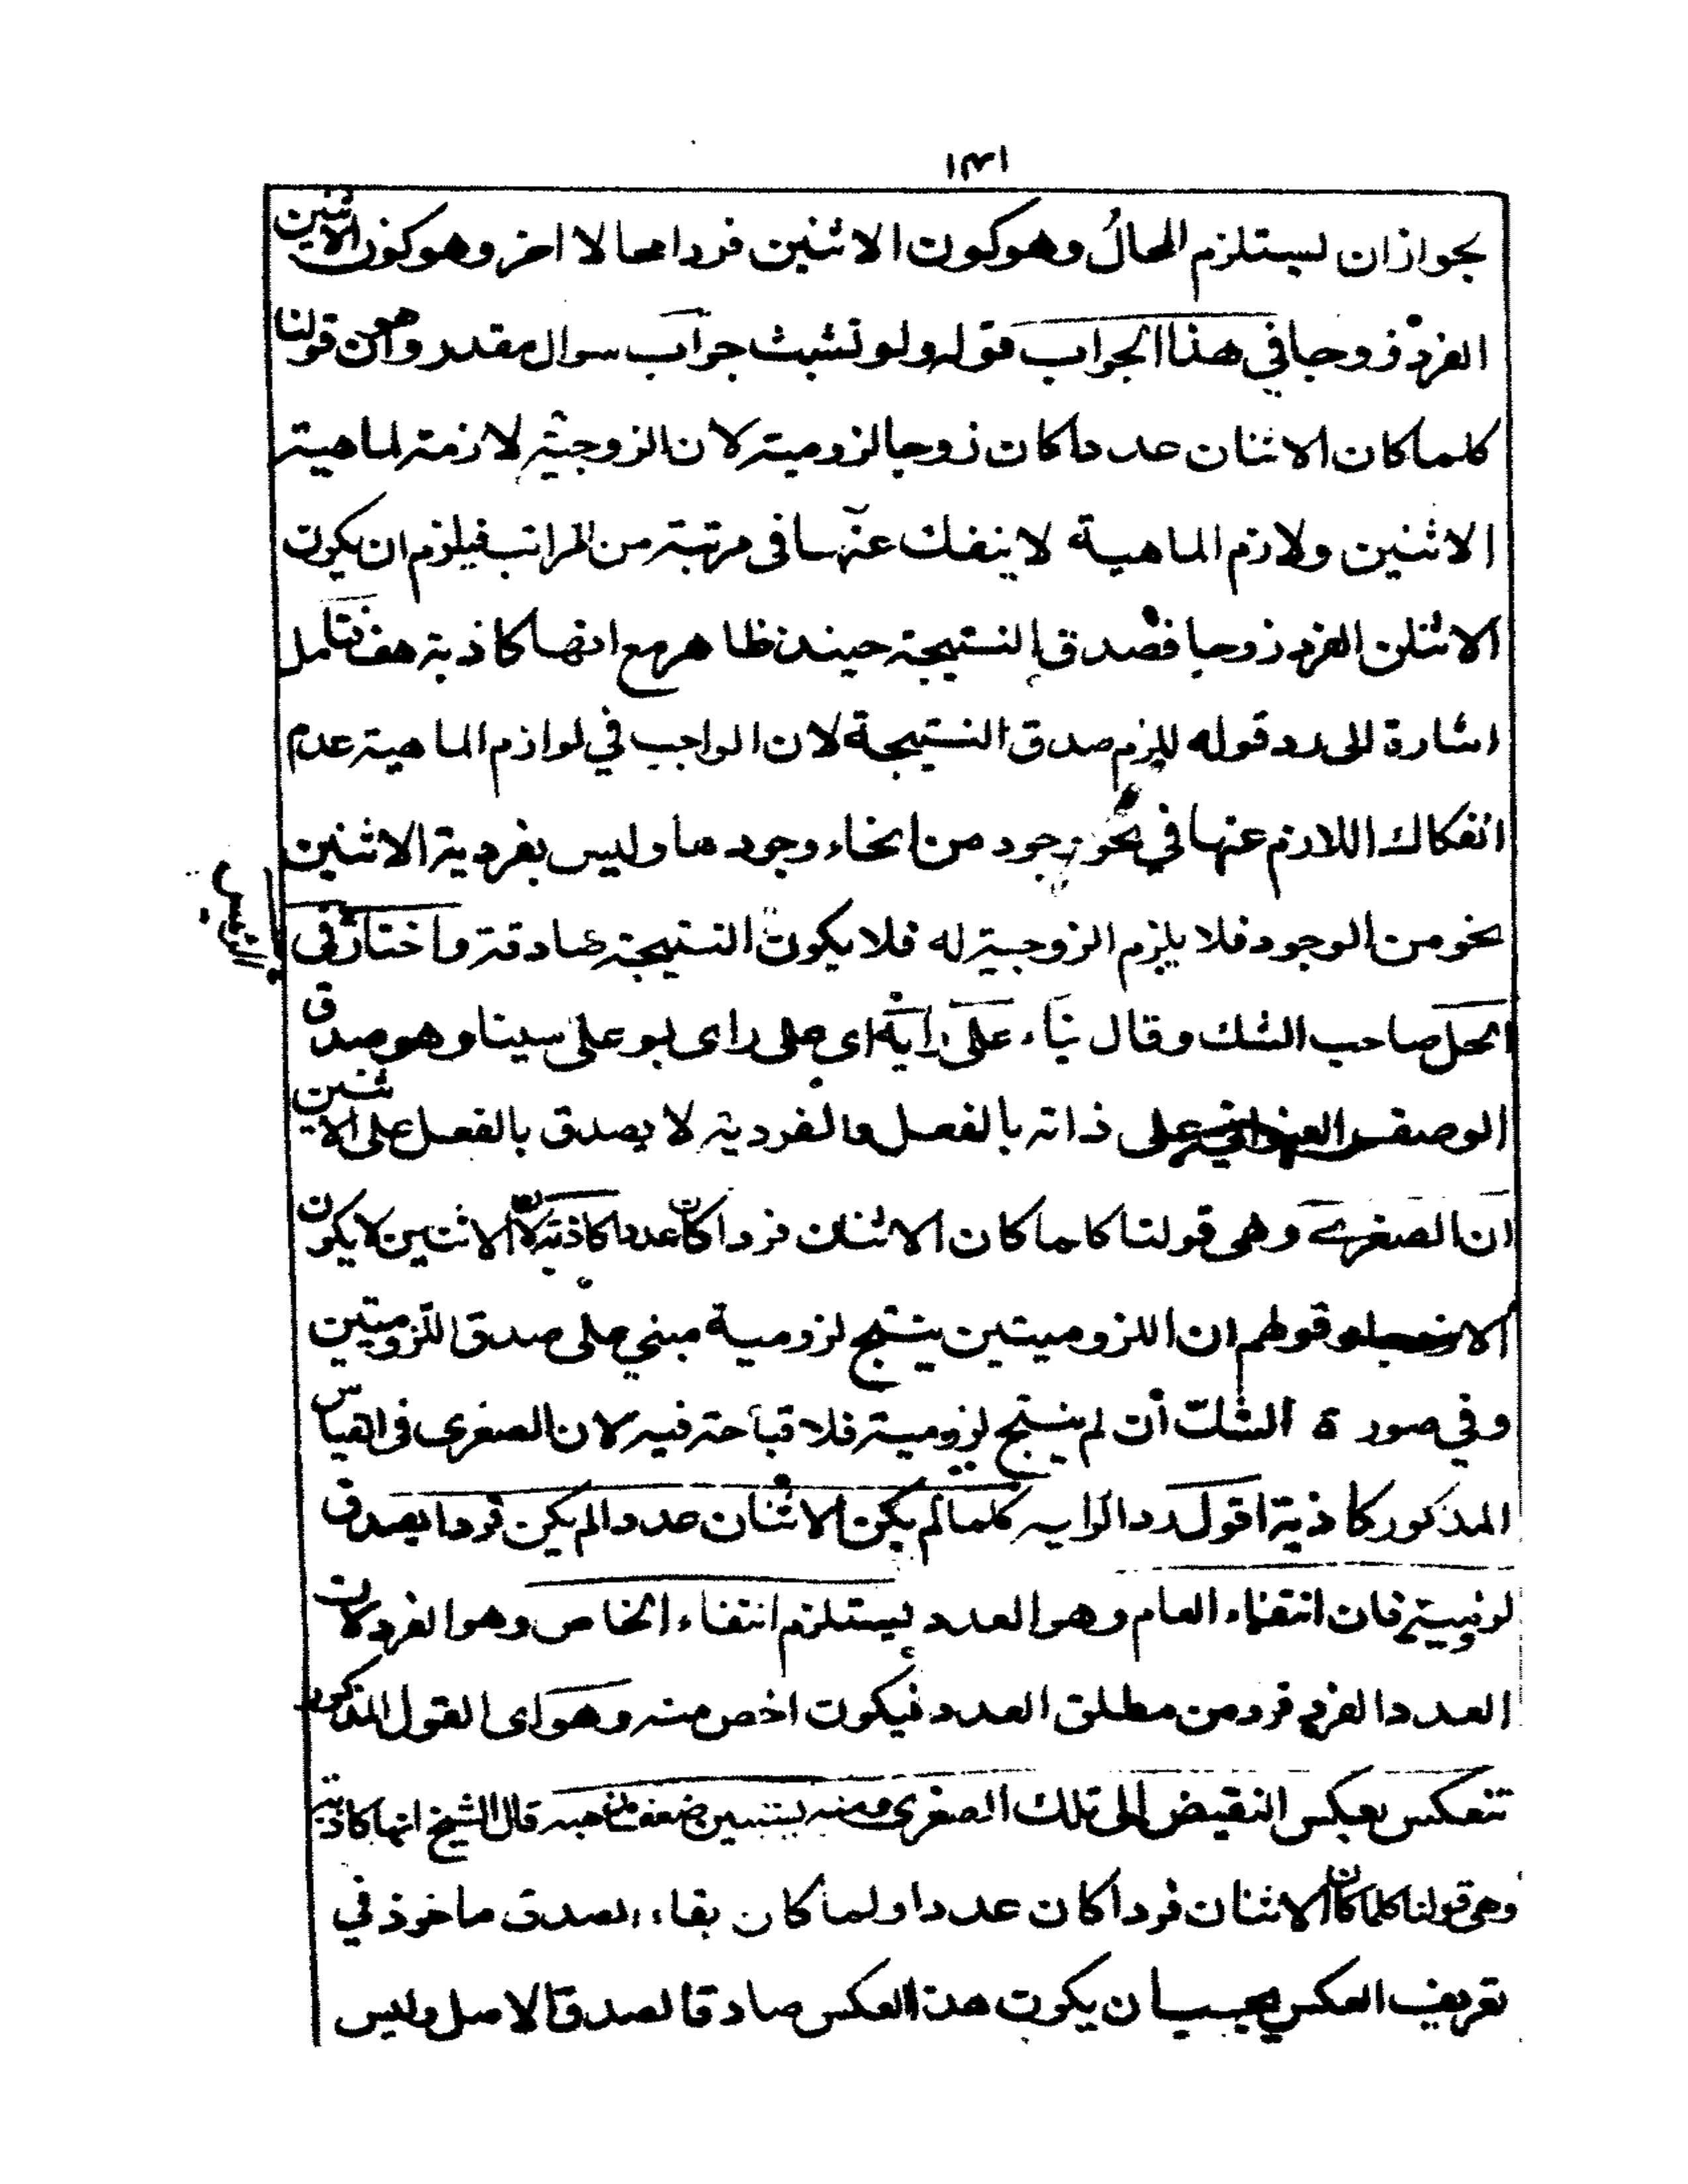 ١٣١
بجواز ان يستلزم المحال وهو كون الاثنين فردا محالا اخر وهو كون الاثنين
الفرد زوجا في هذا الجواب قوله ولو تشبث جواب سوال مقدر وهو ان قولنا
كلما كان الاثنان عددا كان زوجا لزومية لان الزوجية لازمة لماهية
الاثنين ولازم الماهية لا ينفك عنها فى مرتبة من المراتب فيلزم ان يكون
الاثنان الفرد زوجا فصدق النتيجة حينئذ ظاهر مع انها كاذبة هف فتامل
اشارة الى رد قوله للزم صدق النتيجة لان الواجب في لوازم الماهية عدم
انفكاك اللازم عنها في نحو وجود من انحاء وجودها وليس بفردية الاثنين
نحو من الوجود فلا يلزم الزوجية له فلا يكون النتيجة صادقة واختار فى
الحل صاحب الشك وقال بناء على رايه اى على راى بو على سينا وهو صدق
الوصف العنوانى على ذاته بالفعل والفردية لا يصدق بالفعل على الاثنين
ان الصغرى وهى قولنا كلما كان الاثنان فردا كان عددا كاذبة لان الاثنين لا يكون
قولهم ان اللزوميتين ينتج لزومية مبني على صدق اللزوميتين
وفي صورة الشك ان لم ينتج لزومية فلا قباحة فيه لان الصغرى فى القياس
المذكور كاذبة اقول ردا لرايه كلما لم يكن الاثنان عددا لم يكن فردا يصدق
لزومية فان انتفاء العام وهو العدد يستلزم انتفاء الخاص وهو الفرد لان
العدد الفرد فرد من مطلق العدد فيكون اخص منه وهو اى القول المذكور
تنعكس بعكس النقيض الى تلك الصغرى ومنه يستبين ضعف مذهبه قال الشيخ انها كاذبة
وهى قولنا كلما كان الاثنان فردا كان عددا ولما كان بقاء الصدق ماخوذ في
تعريف العكس يجب ان يكون هذا العكس صادقا لصدق الاصل وليس